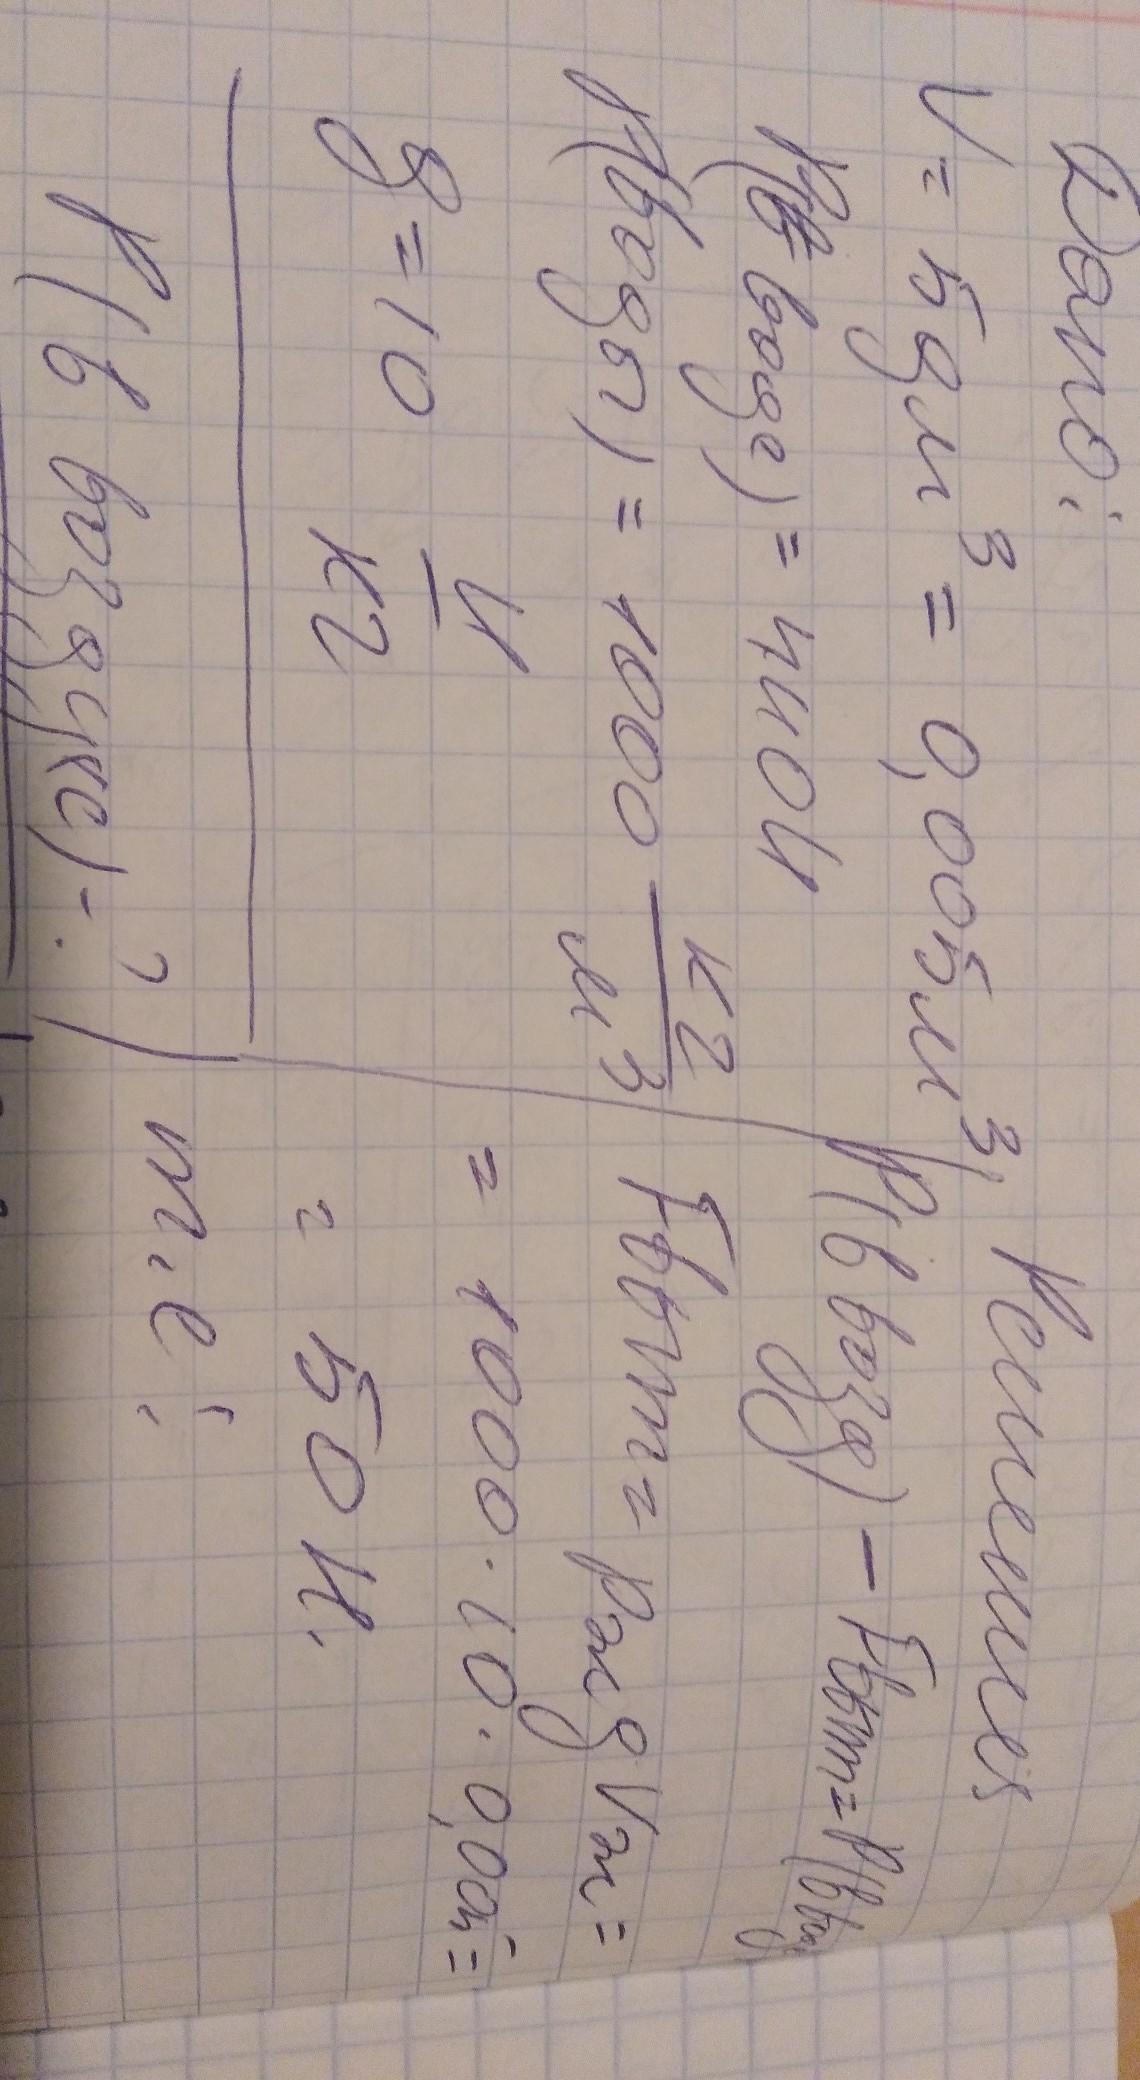 Дано:
V = 5дм³ = 0,005м³.
P(в воде) = 440Н
ρ(воды) = 1000 кг/м³
g = 10 Н/кг
P(в воздухе) - ?
Решение
P(в возд) - Fвыт = P(в вод)
Fвыт = ρж g Vж =
= 1000 · 10 · 0,005 =
= 50 Н.
т.е: